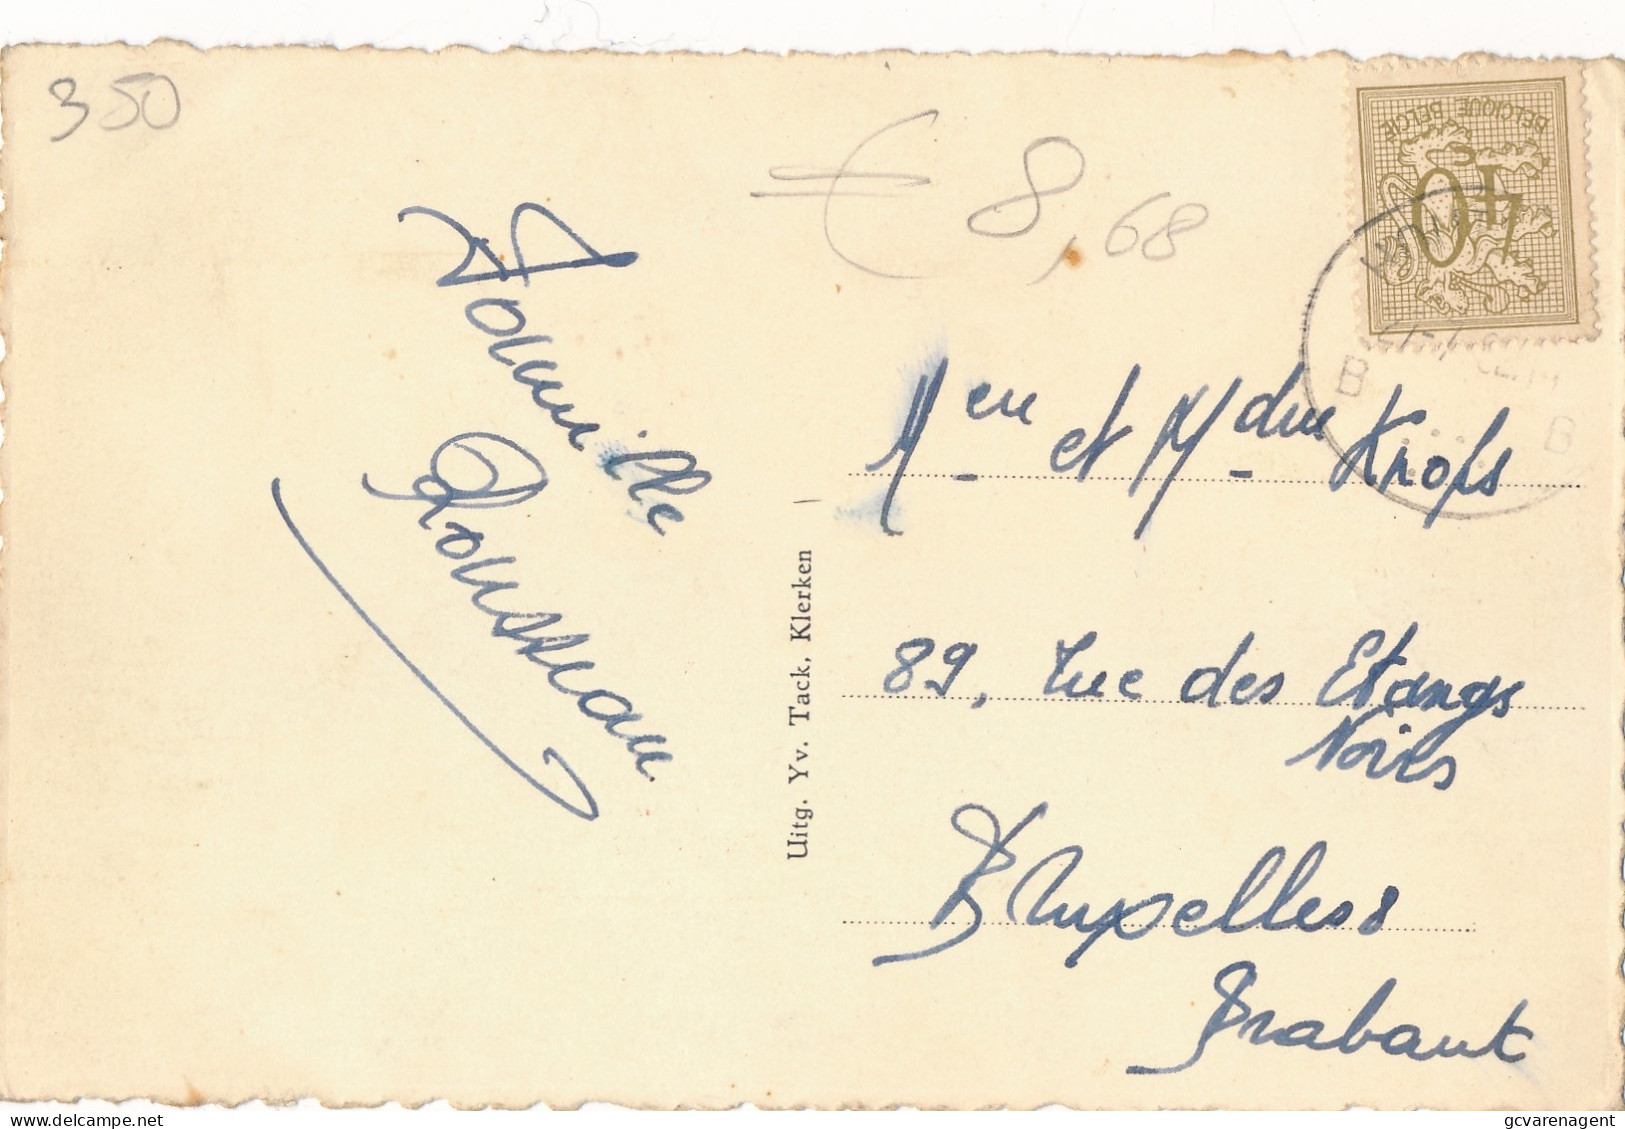 350
€ 8,68
BELGIQUE BELGIE
40
B B
Famille
Rousseau
Uitg. Yv. Tack, Klerken
Meu et Mdme Krofs
89, rue des Etangs
Noirs
Bruxelles 8
Brabant
delcampe.net
gcvarenagent